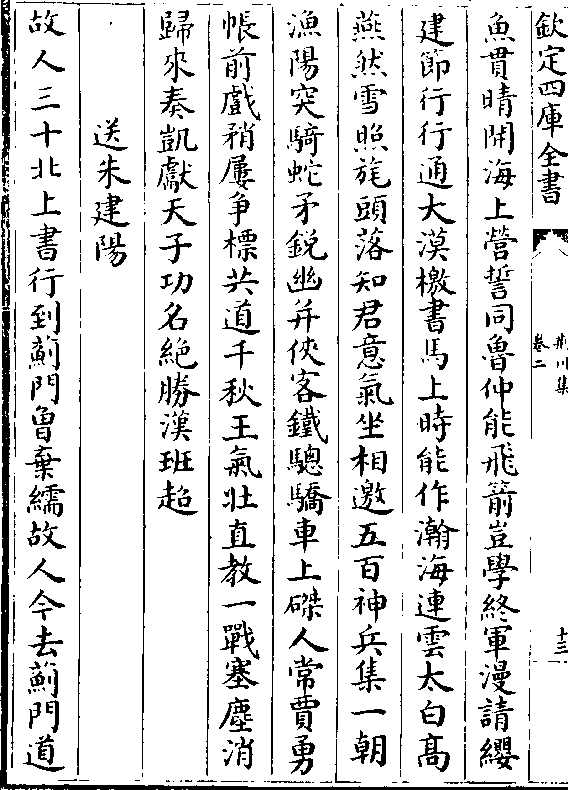 欽定四庫全書
荆川集
卷二
十三
魚貫晴開海上營誓同魯仲能飛箭豈學終軍漫請纓
建節行行通大漠檄書馬上時能作瀚海連雲太白髙
燕然雪照旄頭落知君意氣坐相邀五百神兵集一朝
漁陽突騎蛇矛銳幽并俠客鐵驄驕車上磔人常賈勇
帳前戲矟屢争標共道千秋王氣壯直教一戰塞塵消
歸來奏凱獻天子功名絶勝漢班超
送朱建陽
故人三十北上書行到薊門曽棄繻故人今去薊門道